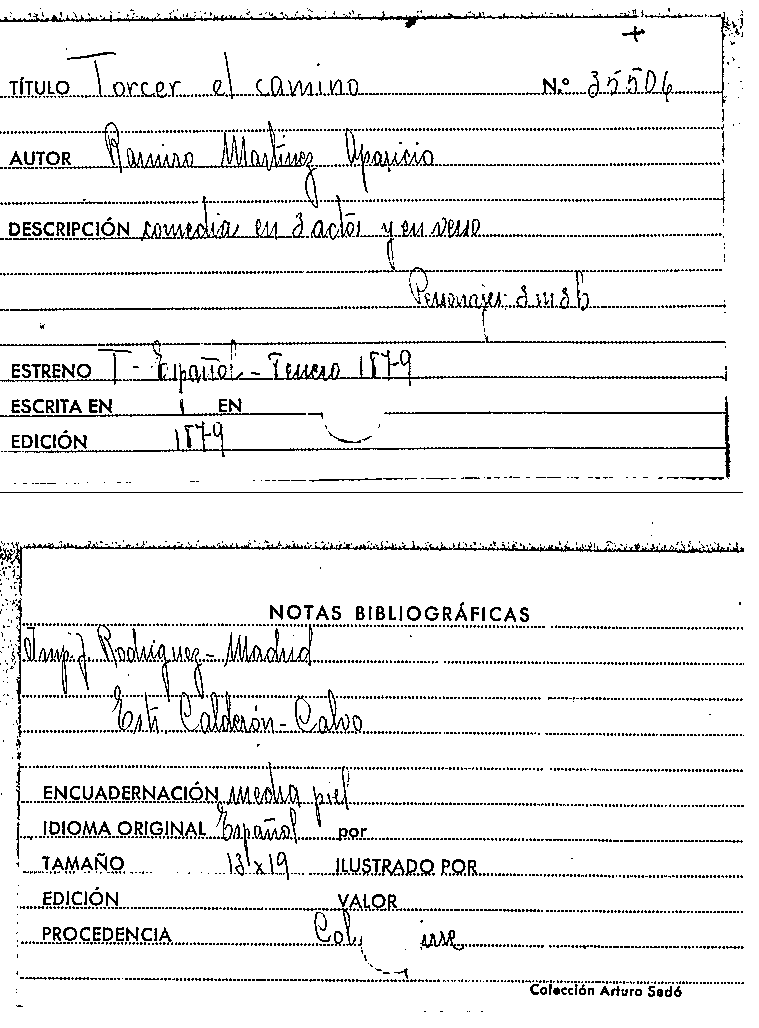 +
TÍTULO Torcer el camino N.º 35506
AUTOR Ramiro Martínez Aparicio
DESCRIPCIÓN comedia en 3 actos y en verso
Personajes 3 m 3 h
ESTRENO T - Español - Febrero 1879
ESCRITA EN EN
EDICIÓN 1879
NOTAS BIBLIOGRÁFICAS
Imp. J. Rodriguez - Madrid
Calderón - Calvo
ENCUADERNACIÓN media piel
IDIOMA ORIGINAL Español por
TAMAÑO 13 x 19 ILUSTRADO POR
EDICIÓN VALOR
PROCEDENCIA Col.
Colección Arturo Sedó